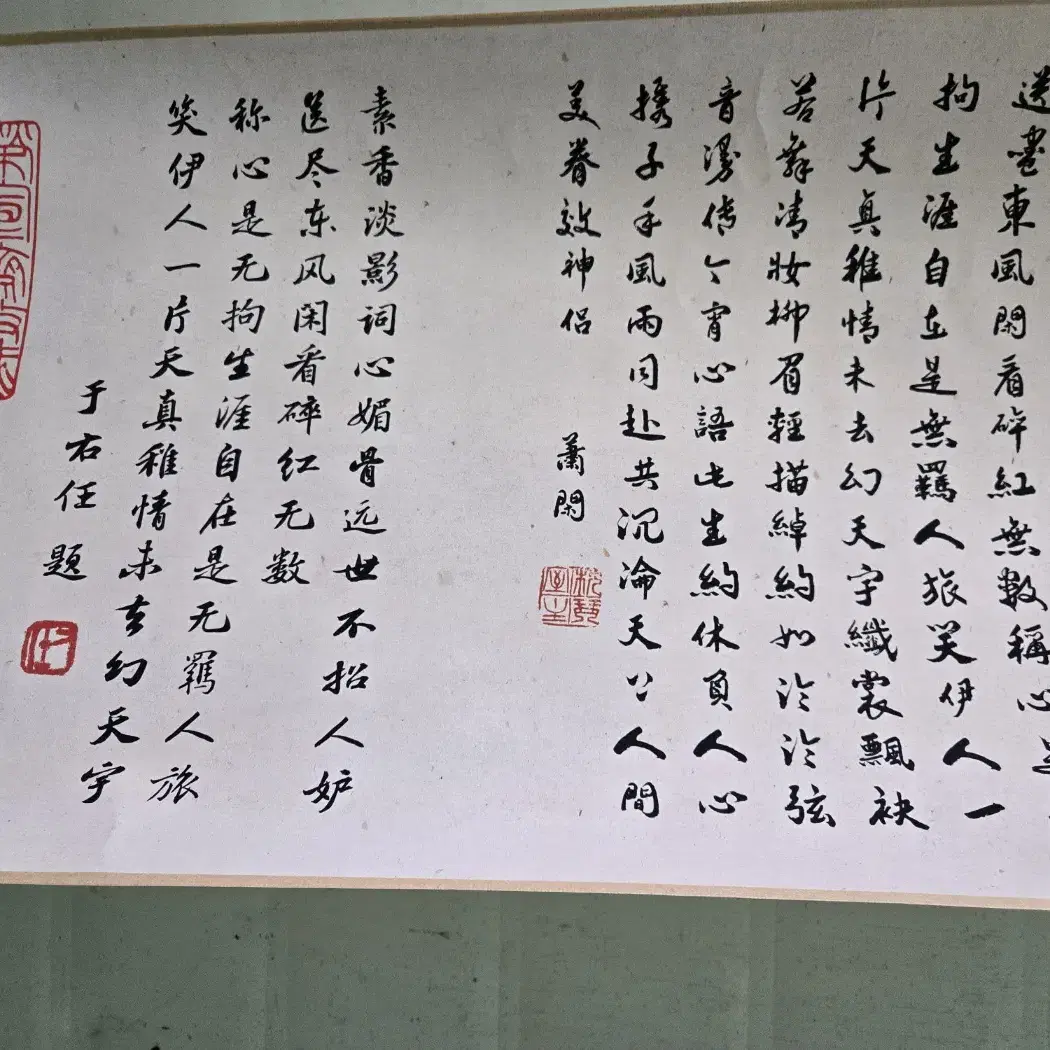 送盡東風閑看碎紅無數稱心是
拘生涯自在是無羈人旅笑伊人一
片天真稚情未去幻天宇纖裳飄袂
若舞清妝柳眉輕描綽約如泠泠弦
音漫傳今宵心語此生約休負人心
攜子手風雨同赴共沉淪天公人間
美眷效神侣
蕭閑
素香淡影词心媚骨远世不招人妒
送尽东风闲看碎红无数
称心是无拘生涯自在是无羁人旅
笑伊人一片天真稚情未去幻天宇
于右任题